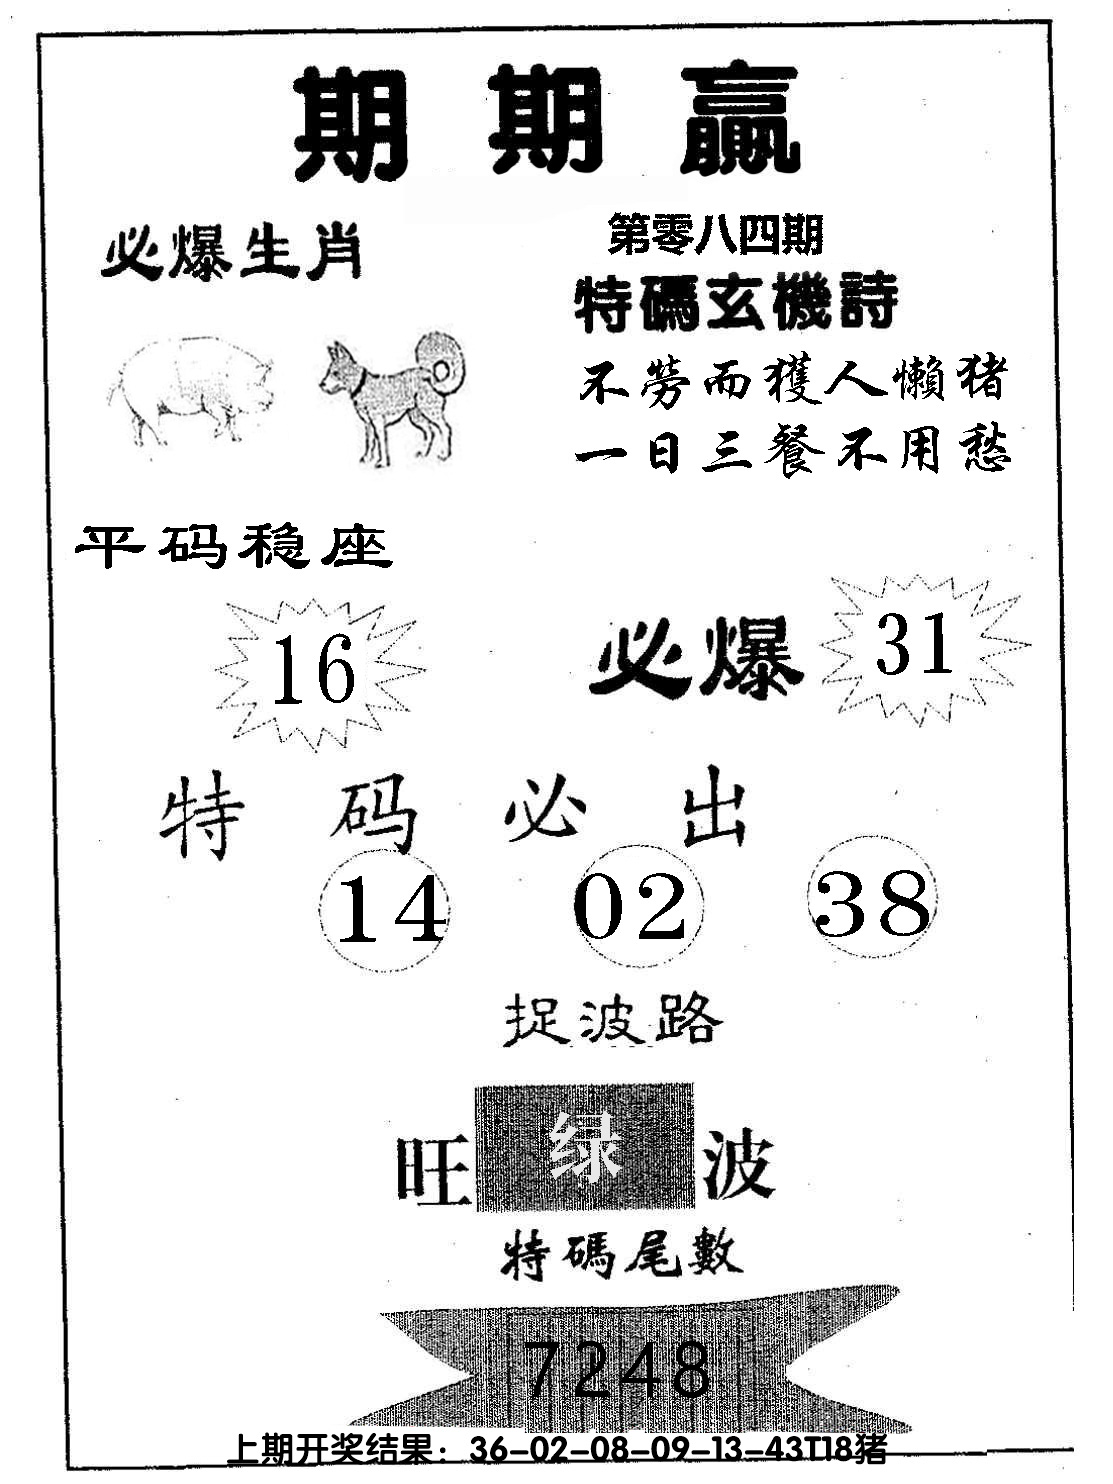 期期贏
必爆生肖
第零八四期
特碼玄機詩
不勞而獲人懶猪
一日三餐不用愁
平码稳座
16
必爆 31
特码必出
14 02 38
捉波路
旺 绿 波
特碼尾數
7248
上期开奖结果：36-02-08-09-13-43T18猪